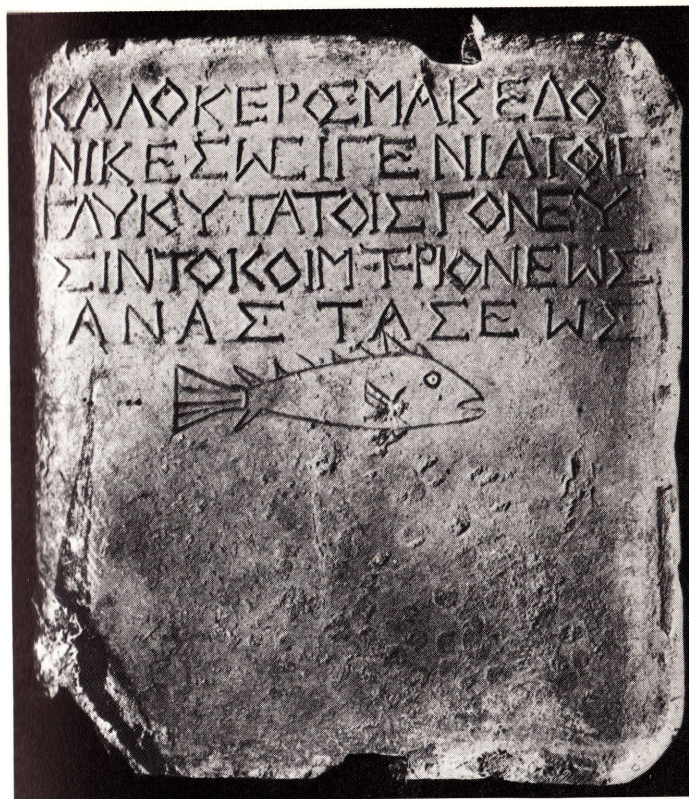 ΚΑΛΟΚΕΡΟΣΜΑΚΕΔΟ
ΝΙΚΕΣΩΣΙΓΕΝΙΑΤΟΙΣ
ΓΛΥΚΥΤΑΤΟΙΣΓΟΝΕΥ
ΣΙΝΤΟΚΟΙΜΗΤΡΙΟΝΕΩΣ
ΑΝΑΣΤΑΣΕΩΣ